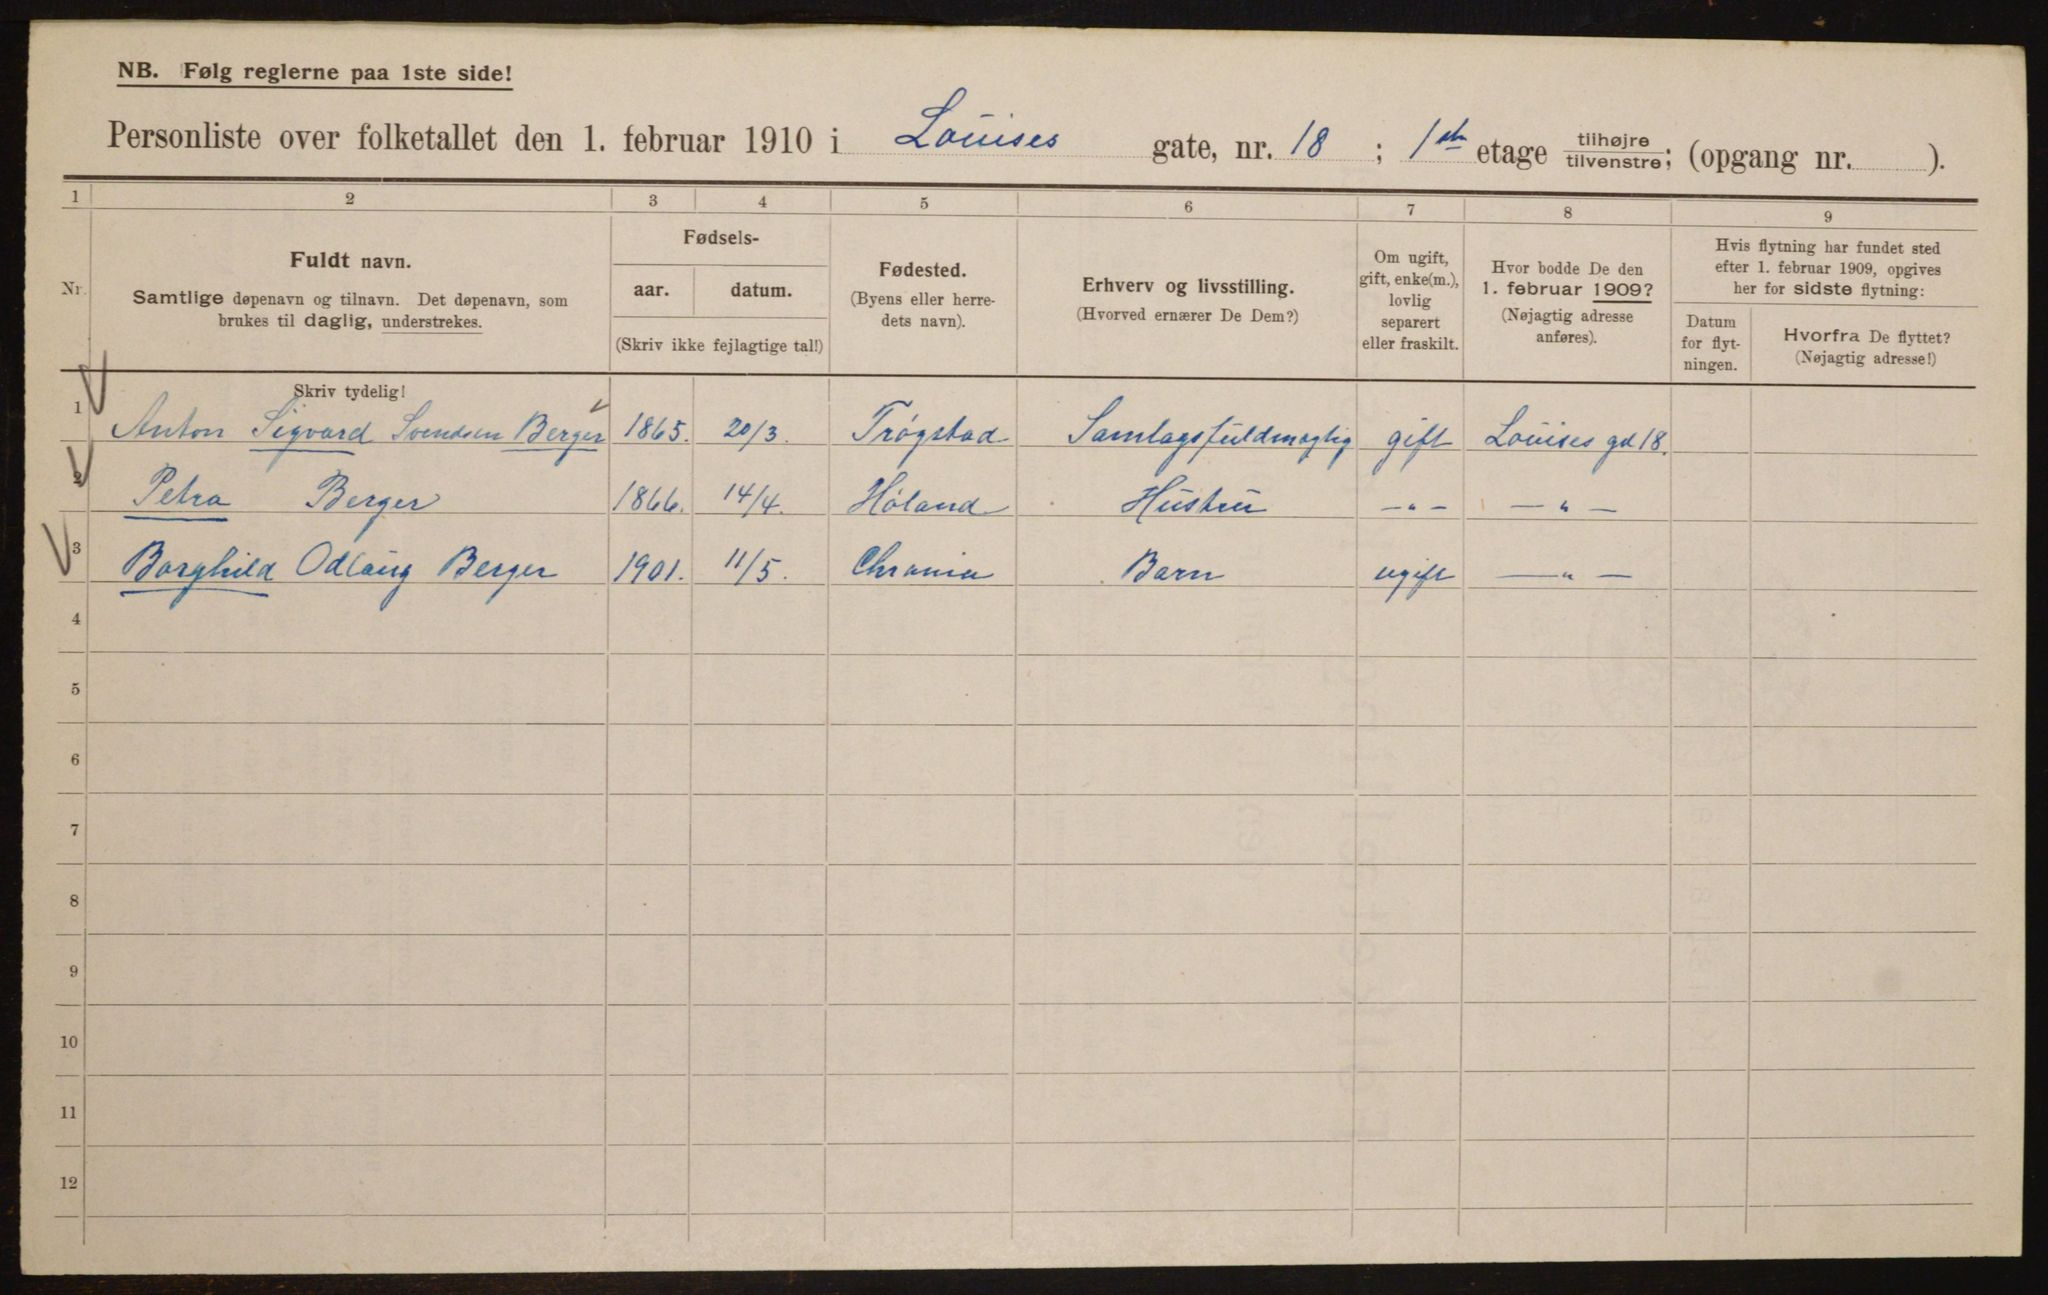 NB. Følg reglerne paa 1ste side!
Personliste over folketallet den 1. februar 1910 i Louises gate, nr. 18 ; 1ste etage tilhøjre tilvenstre; (opgang nr. ).
1 2 3 4 5 6 7 8 9
Nr.
Fuldt navn.
Samtlige døpenavn og tilnavn. Det døpenavn, som
brukes til daglig, understrekes.
Fødsels-
aar. datum.
(Skriv ikke fejlagtige tal!)
Fødested.
(Byens eller herre-
dets navn).
Erhverv og livsstilling.
(Hvorved ernærer De Dem?)
Om ugift,
gift, enke(m.),
lovlig
separert
eller fraskilt.
Hvor bodde De den
1. februar 1909?
(Nøjagtig adresse
anføres).
Hvis flytning har fundet sted
efter 1. februar 1909, opgives
her for sidste flytning:
Datum
for flyt-
ningen.
Hvorfra De flyttet?
(Nøjagtig adresse!)
Skriv tydelig!
1 Anton Sigvard Svendsen Berger 1865. 20/3. Trøgstad Samlagsfuldmægtig gift Louises gd 18.
2 Petra Berger 1866. 14/4. Høland Hustru —"— —"—
3 Borghild Odlaug Berger 1901. 11/5. Chrania Barn ugift —"—
4
5
6
7
8
9
10
11
12